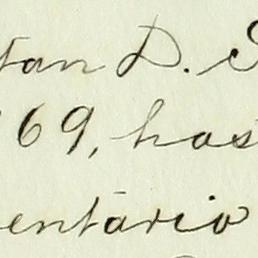 tan D.
69, has
entario